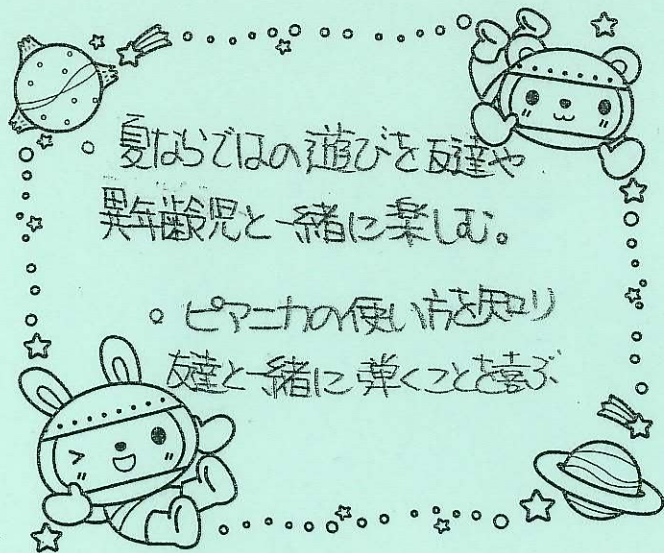 。夏ならではの遊びを友達や
異年齢児と一緒に楽しむ。
。ピアニカの使い方を知り
友達と一緒に弾くことを喜ぶ